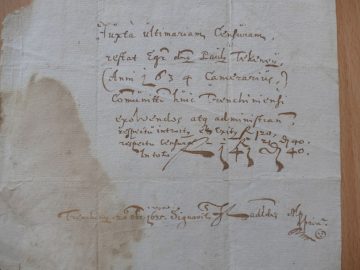 Juxta ultimariam Censuram,
restat Egr. dnus Paulus
(Anni 1634 Camerarius,)
Comunitti huic Trenchiniensi
exolvendos atq administran
respectu introitg et Exitg f 120.
respectu Censurae f 21 d 40.
In toto f 141 d 40
Trenchiny 1635. Signavit